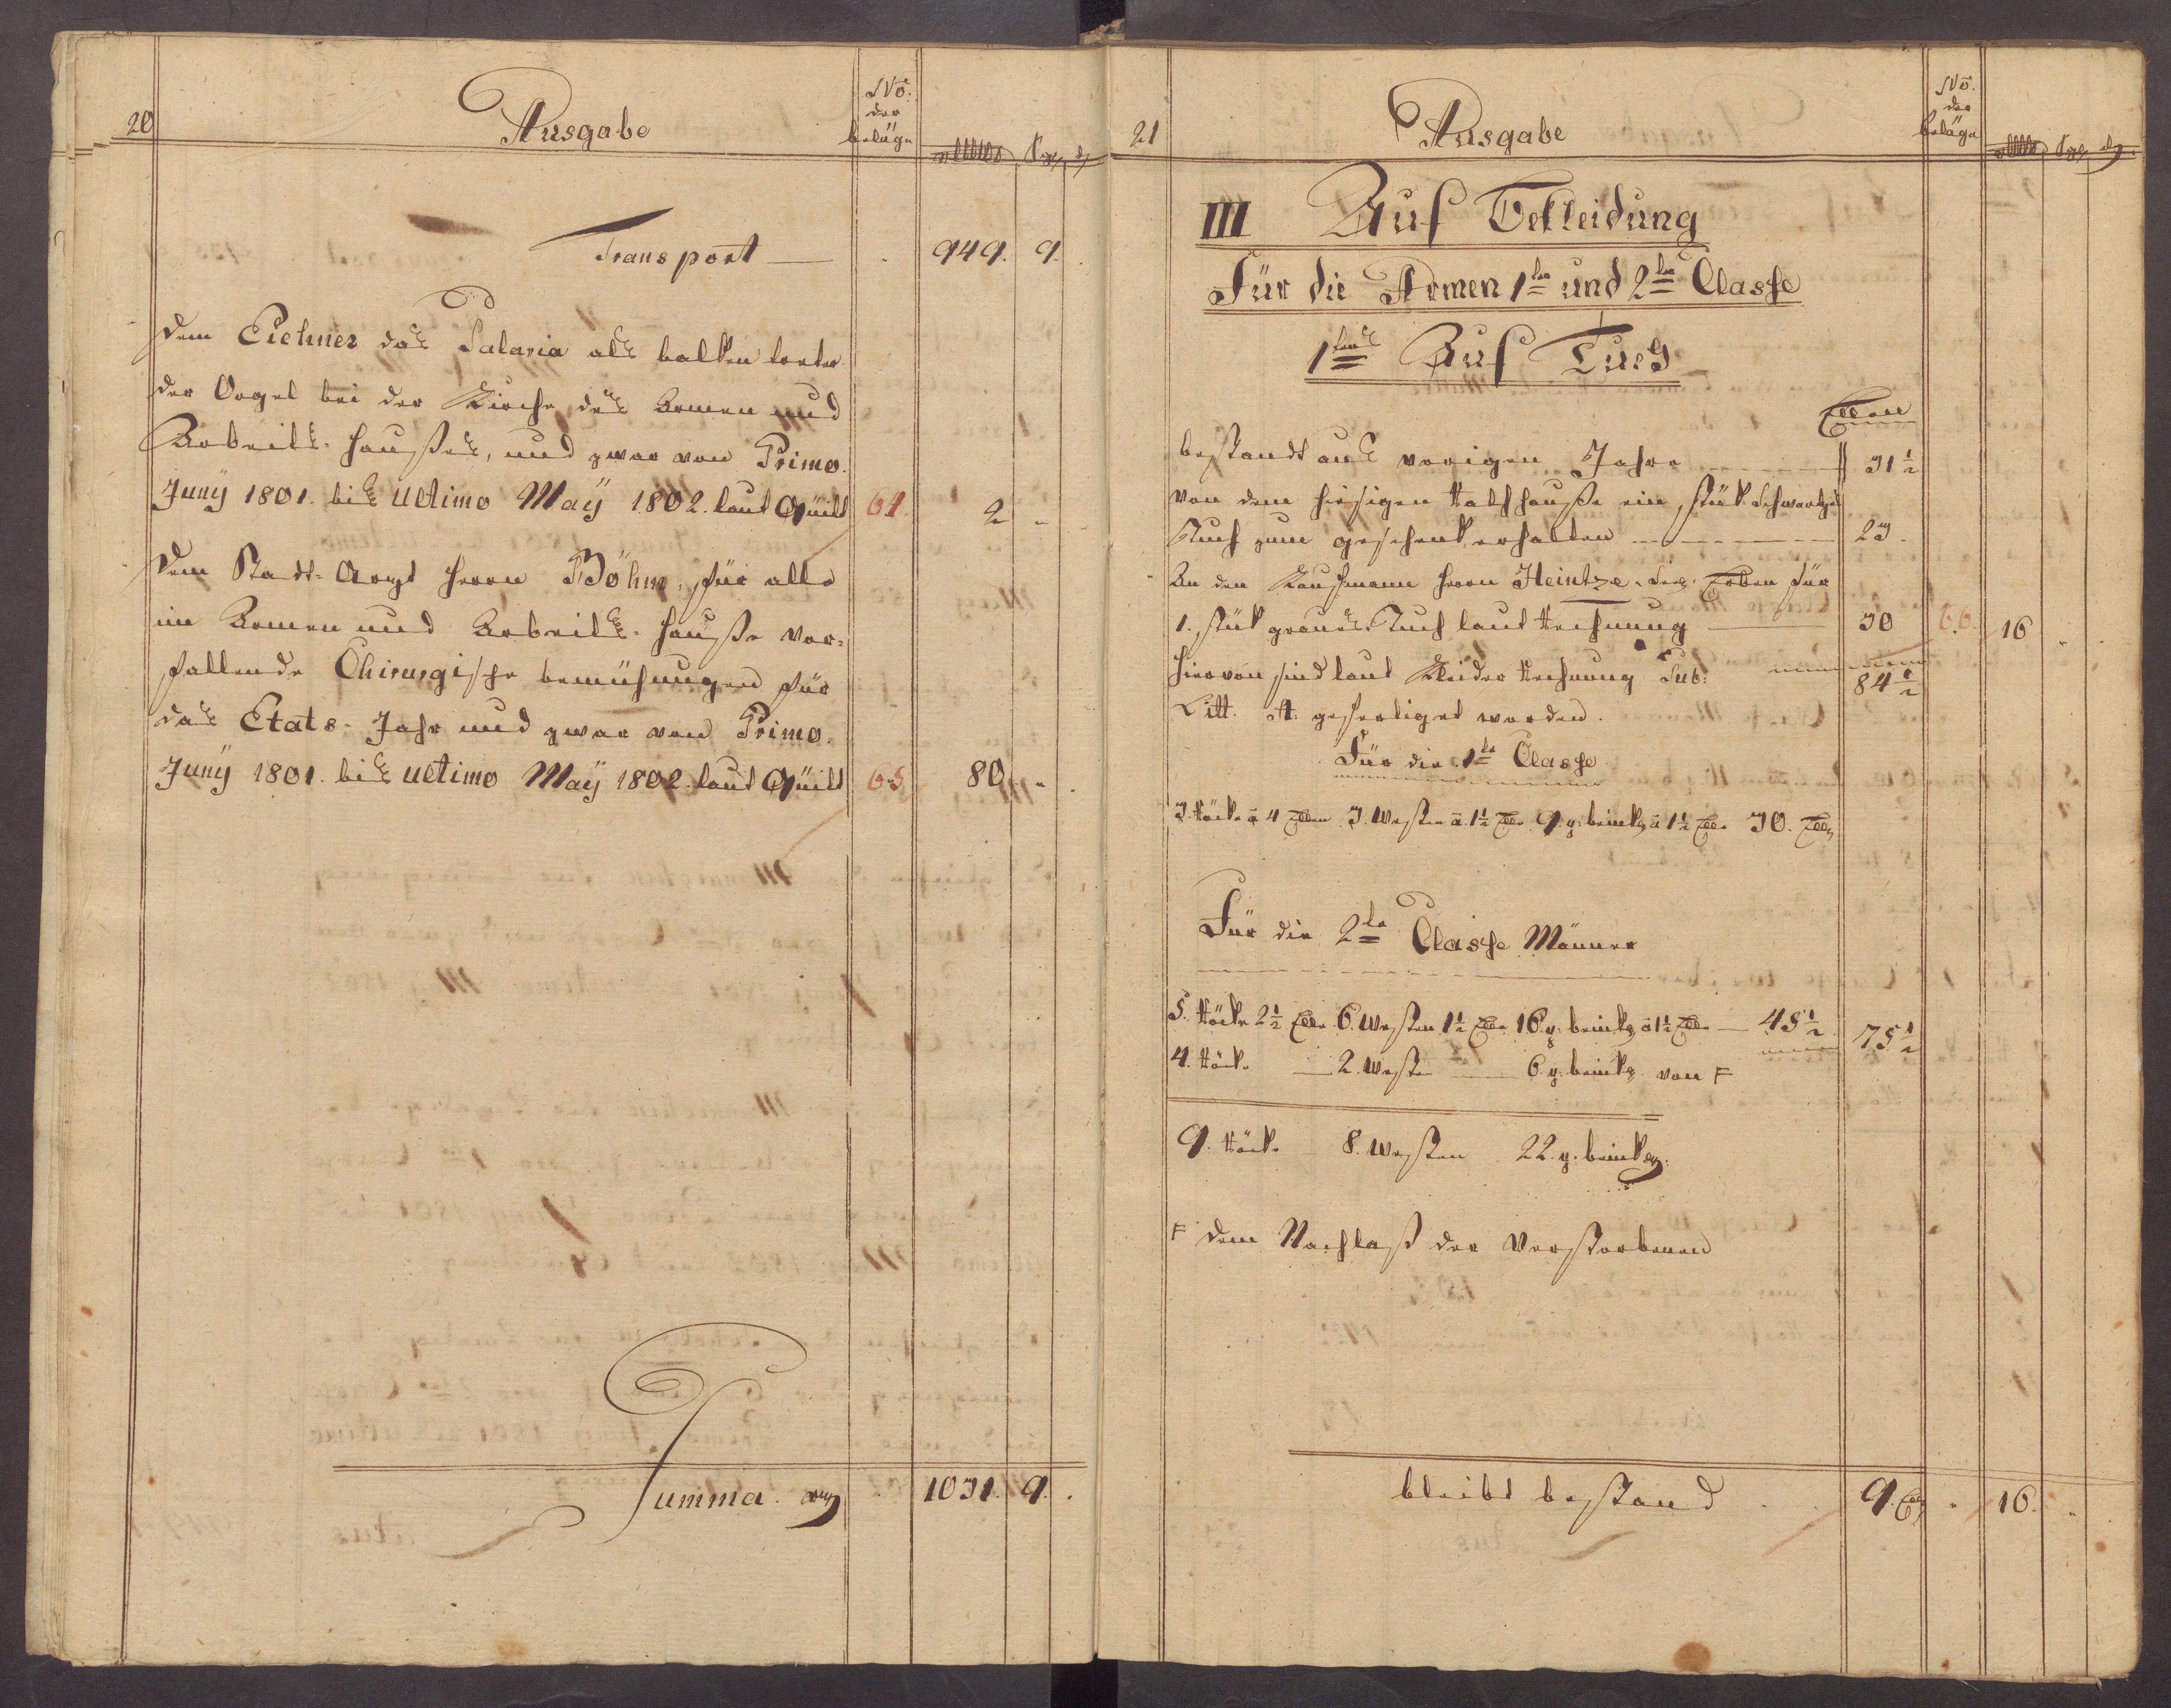 20
Ausgabe
No.
der
beläge
Transport — 949. 9.
dem Eichner das Salaria als balken treter
der Orgel bei der Kirche des Armen und
Arbeits-Haußes, und zwar von Primo.
Juny 1801. bis ultimo Maÿ 1802. laut Quitt 64. 2 -
dem Stadt-Arzt Herrn Böhme, für alle
im Armen und Arbeits-Hauße vor-
fallende Chirurgische bemühungen für
das Etats-Jahr und zwar von Primo.
Juny 1801. bis ultimo Maÿ 1802. laut Quitt 65 80 -
Summa. 1031. 9.
21
Ausgabe
No.
der
beläge
III Auf Bekleidung
Für die Armen 1ter und 2ter Classe
1tens Auf Tuch
Ellen
bestandt aus vorigen Jahre 31½
von dem hiesigen Rathhauße ein stük Schwartzes
Tuch zum geschenk erhalten 23.
An den Kaufmann Herrn Heintze Erben für
1. stük graues Tuch laut Rechnung 30 66. 16
84½
hiervon sind laut Kleider Rechnung Sub:
Litt. A. gefertiget worden.
Für die 1te Classe
3. Röcke á 4 Ellen 3. Westen á 1½ Elle 9. p. beinkl á 1½ Elle 30. Elln
Für die 2te Classe Männer
5. Röcke 2½ Elle 6. Westen 1½ Elle 16. p. beinkl á 1½ Elle — 45½ 75½
4. Röcke — 2. Weste — 6. p. beinkl von F
9. Röcke 8. Westen 22. p. beinkl.
F dem Nachlaß der Verstorbenen
bleibt bestand 9. Elln 16.